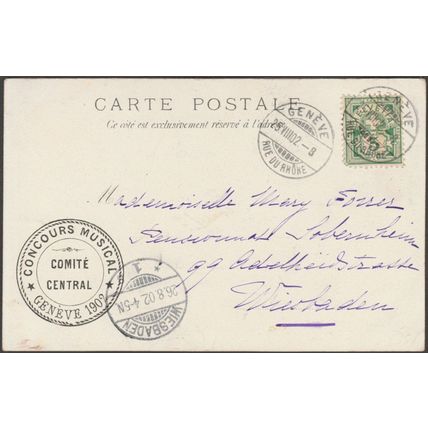 CARTE POSTALE
Ce côté est exclusivement réservé à l'adresse
GENÈVE
25.VIII.02.-8
RUE DU RHÔNE
GENÈVE
5
Mademoiselle Mary Forrer
Pensionnat Sobernheim
99 Adelheidstrasse
Wiesbaden
CONCOURS MUSICAL
COMITÉ
CENTRAL
GENÈVE 1902
* 1
26.8.02.4-5N
WIESBADEN